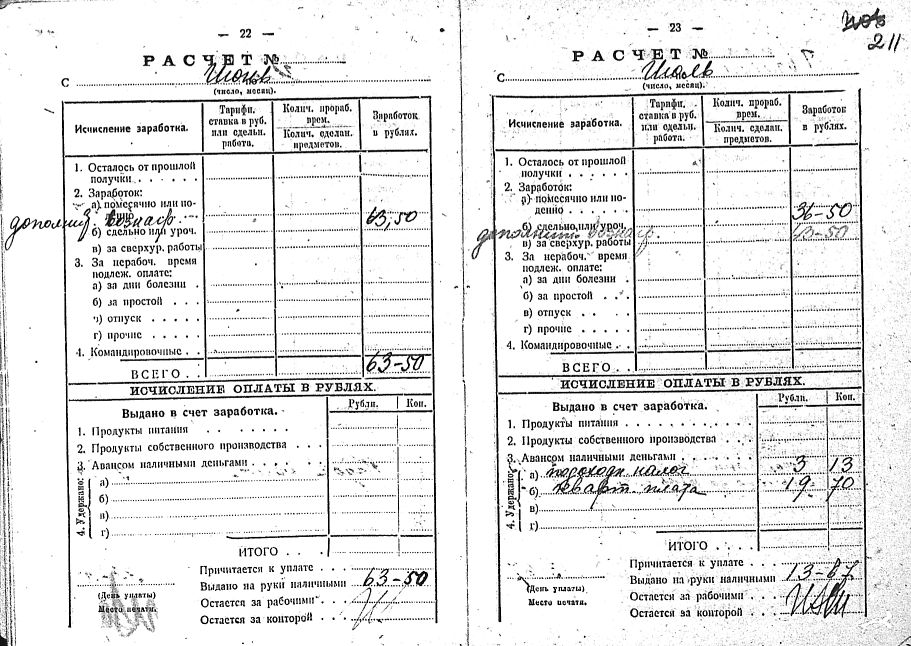 — 22 —
РАСЧЕТ №
С Июнь
(число, месяц).
Исчисление заработка.
Тарифн. ставка в руб. или сдельн. работа.
Колич. прораб. врем.
Колич. сделан. предметов.
Заработок в рублях.
1. Осталось от прошлой
получки
2. Заработок:
а) помесячно или по-
денно
дополнит. вознагр. 63,50
б) сдельно или уроч.
в) за сверхур. работы
3. За нерабоч. время
подлеж. оплате:
а) за дни болезни
б) за простой
ч) отпуск
г) прочие
4. Командировочные
ВСЕГО 63-50
ИСЧИСЛЕНИЕ ОПЛАТЫ В РУБЛЯХ.
Выдано в счет заработка.
Рубли. Коп.
1. Продукты питания
2. Продукты собственного производства
3. Авансом наличными деньгами
4. Удержано:
а)
б)
в)
г)
ИТОГО
Причитается к уплате
Выдано на руки наличными 63-50
(День уплаты)
Остается за рабочими
Место печати.
Остается за конторой
— 23 —
211
РАСЧЕТ №
С Июль
(число, месяц).
Исчисление заработка.
Тарифн. ставка в руб. или сдельн. работа.
Колич. прораб. врем.
Колич. сделан. предметов.
Заработок в рублях.
1. Осталось от прошлой
получки
2. Заработок:
а) помесячно или по-
денно 36-50
б) сдельно или уроч.
дополнит. вознагр. 63-50
в) за сверхур. работы
3. За нерабоч. время
подлеж. оплате:
а) за дни болезни
б) за простой
в) отпуск
г) прочие
4. Командировочные
ВСЕГО
ИСЧИСЛЕНИЕ ОПЛАТЫ В РУБЛЯХ.
Выдано в счет заработка.
Рубли. Коп.
1. Продукты питания
2. Продукты собственного производства
3. Авансом наличными деньгами
4. Удержано:
а) подоходн налог 3 13
б) кварт. плата 19 70
в)
г)
ИТОГО
Причитается к уплате
Выдано на руки наличными 13-67
(День уплаты)
Остается за рабочими
Место печати.
Остается за конторой